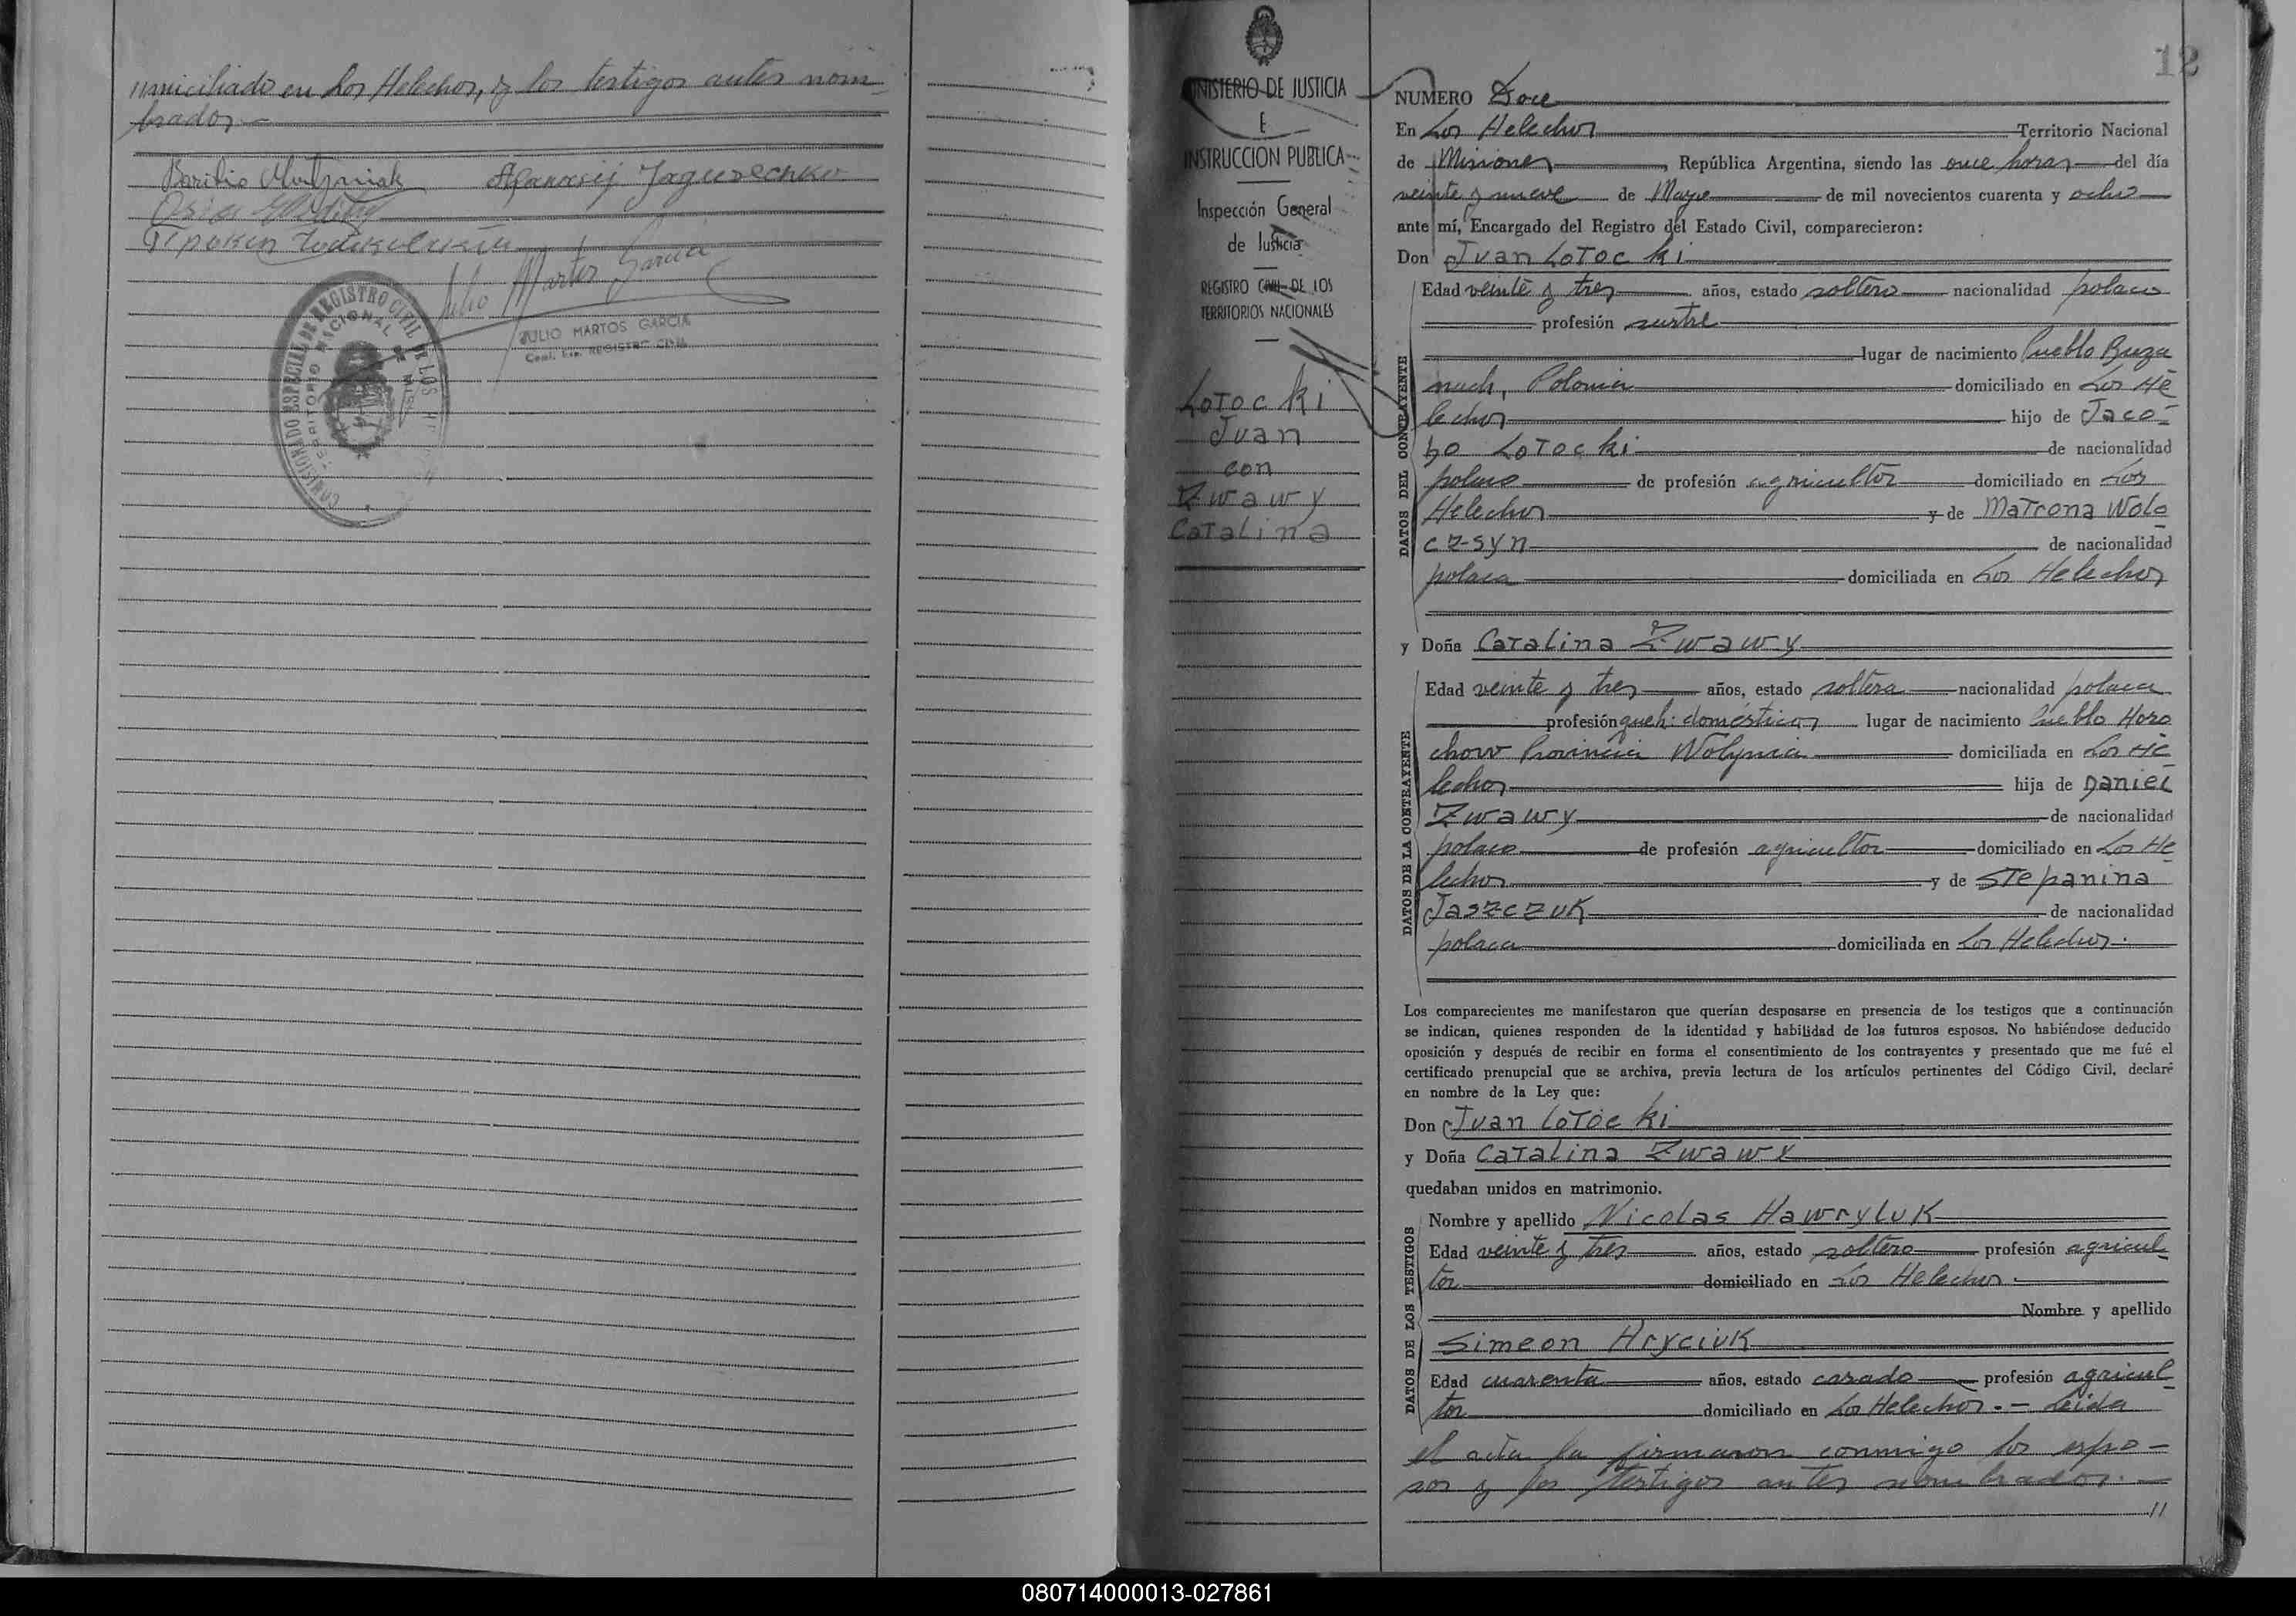 miciliado en Los Helechos, y los testigos antes nom-
brados.-
Afanasij Jaguszenko
Julio Martos Garcia
JULIO MARTOS GARCIA
REGISTRO CIVIL
COMISIONADO ESPECIAL DE REGISTRO CIVIL DE LOS
TERRITORIO NACIONAL DE MIS
MINISTERIO DE JUSTICIA
E
INSTRUCCION PUBLICA
Inspección General
de Justicia
REGISTRO CIVIL DE LOS
TERRITORIOS NACIONALES
Lotocki
Juan
con
Zwawy
Catalina
12
NUMERO Doce
En Los Helechos Territorio Nacional
de Misiones, República Argentina, siendo las once horas del día
veinte y nueve de Mayo de mil novecientos cuarenta y ocho
ante mí, Encargado del Registro del Estado Civil, comparecieron:
Don Juan Lotocki
DATOS DEL CONTRAYENTE
Edad veinte y tres años, estado soltero nacionalidad polaco
profesión sastre
lugar de nacimiento Pueblo
Polonia domiciliado en Los He
lechos hijo de Jaco-
bo Lotocki de nacionalidad
polaco de profesión agricultor domiciliado en Los
Helechos y de Matrona Wolo
czsyn de nacionalidad
polaca domiciliada en Los Helechos
y Doña Catalina Zwawy
DATOS DE LA CONTRAYENTE
Edad veinte y tres años, estado soltera nacionalidad polaca
profesión queh: domésticos lugar de nacimiento Pueblo Horo
chow Provincia Wolynia domiciliada en Los He
lechos hija de Daniel
Zwawy de nacionalidad
polaco de profesión agricultor domiciliado en Los He
lechos y de Stepanina
Jaszczuk de nacionalidad
polaca domiciliada en Los Helechos.
Los comparecientes me manifestaron que querían desposarse en presencia de los testigos que a continuación
se indican, quienes responden de la identidad y habilidad de los futuros esposos. No habiéndose deducido
oposición y después de recibir en forma el consentimiento de los contrayentes y presentado que me fué el
certificado prenupcial que se archiva, previa lectura de los artículos pertinentes del Código Civil, declaré
en nombre de la Ley que:
Don Juan Lotocki
y Doña Catalina Zwawy
quedaban unidos en matrimonio.
DATOS DE LOS TESTIGOS
Nombre y apellido Nicolas Hawryluk
Edad veinte y tres años, estado soltero profesión agricul-
tor domiciliado en Los Helechos.
Nombre y apellido
Simeon Hryciuk
Edad cuarenta años, estado casado profesión agricul-
tor domiciliado en Los Helechos.- Leida
el acta la firmaron conmigo los espo-
sos y los testigos antes nombrados.-
//
080714000013-027861